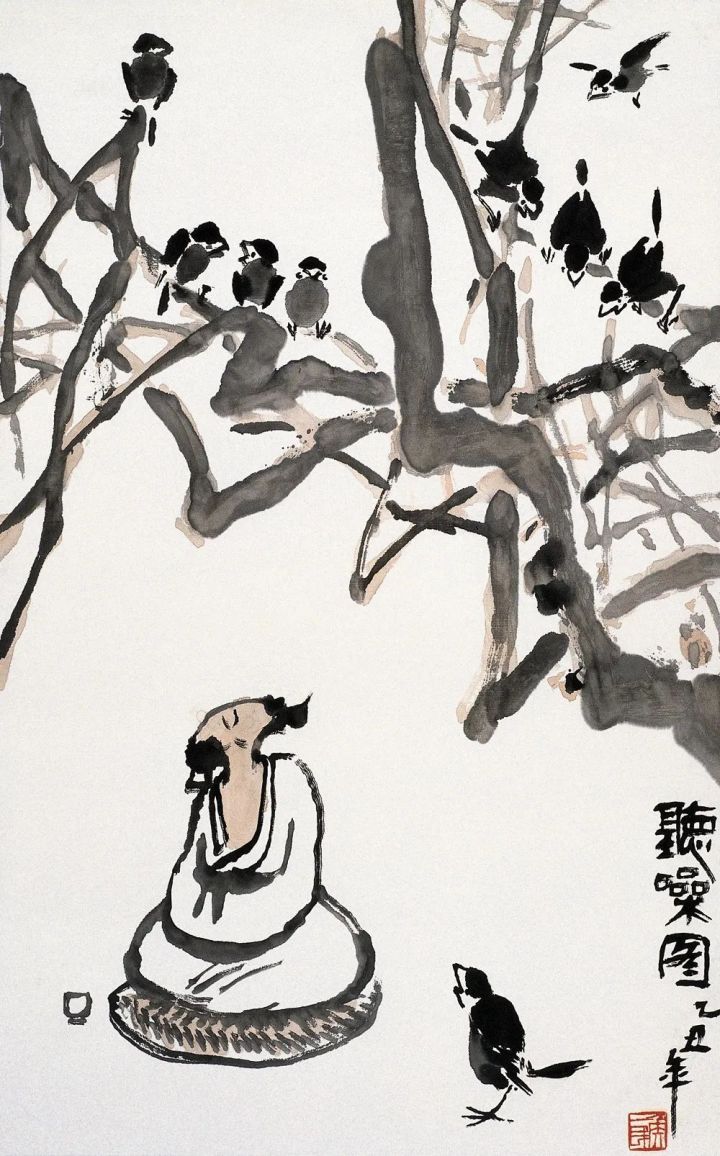 聽噪图
乙丑年